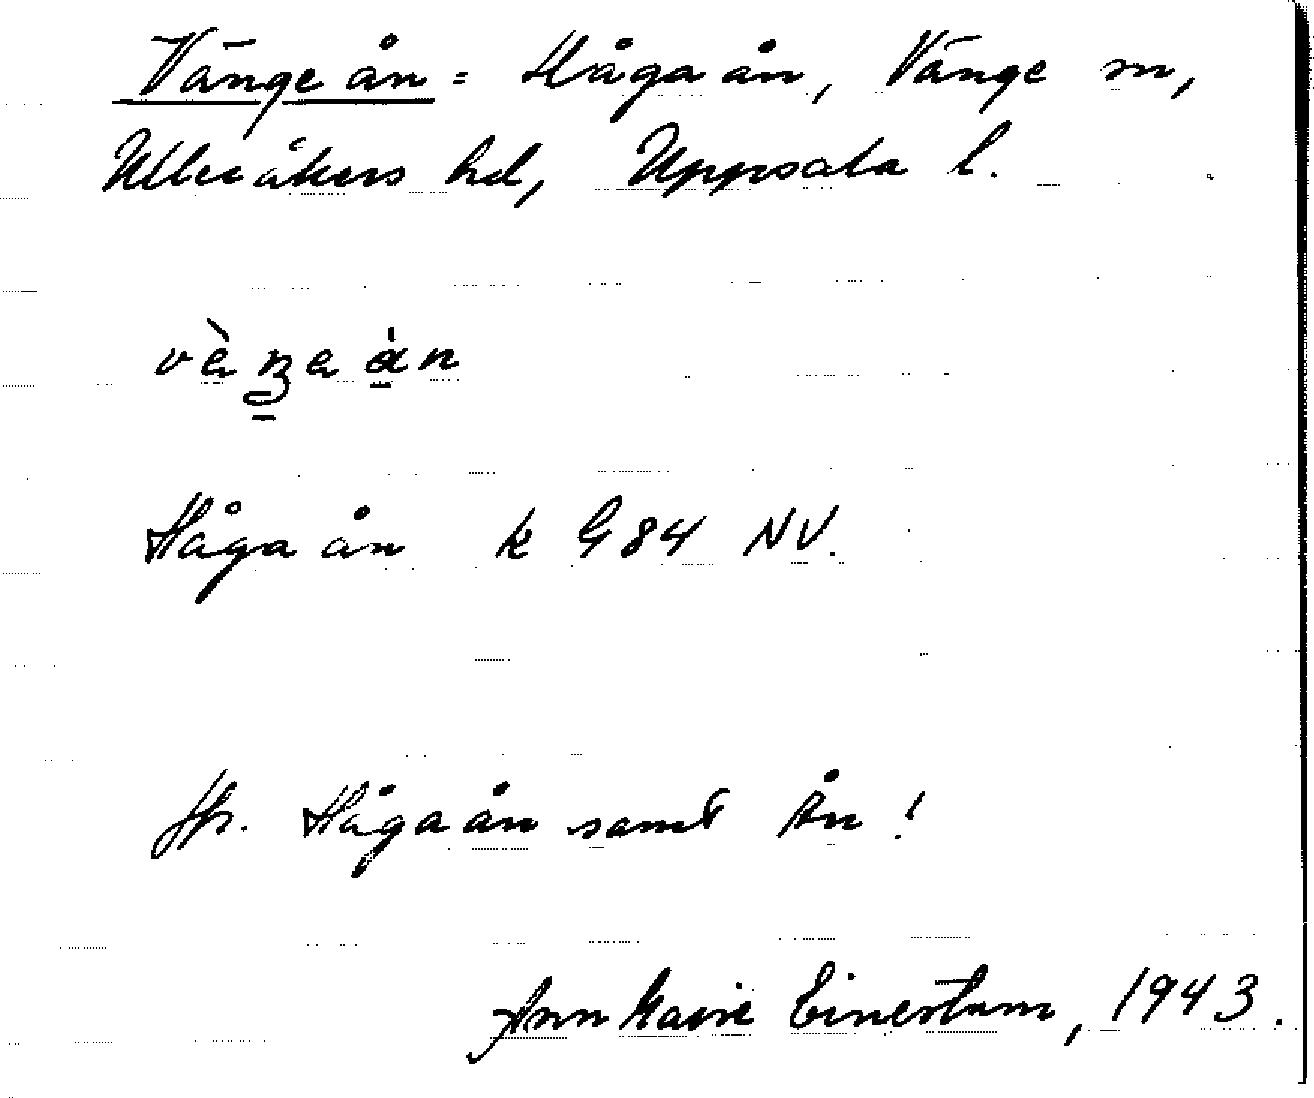 Vänge ån = Håga ån, Vänge sn,
Ulleråkers hd, Uppsala l.
Håga ån k G 84 NV.
Jfr. Håga ån samt Ån!
Ann Marie Einerstam, 1943.